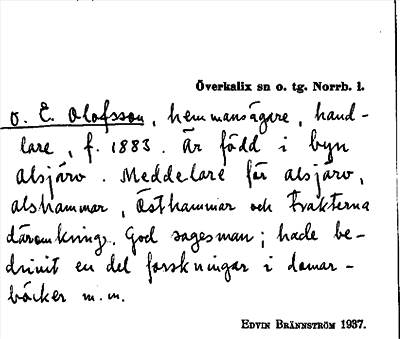 Överkalix sn o. tg. Norrb. l.
O. E. Olofsson, hemmansägare, hand-
lare, f. 1883. Är född i byn
Alsjärv. Meddelare för Alsjärv,
Alshammar, Östhammar och trakterna
däromkring. God sagesman; hade be-
drivit en del forskningar i domar-
böcker m.m.
EDVIN BRÄNNSTRÖM 1937.